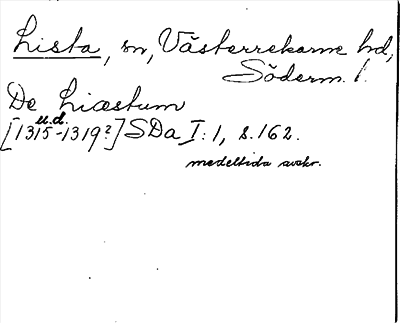 Lista, sn, Västerrekarne hd,
Söderm. l.
De Liæstum
u.d.
[1315-1319?] SDa I:1, s. 162.
medeltida avskr.